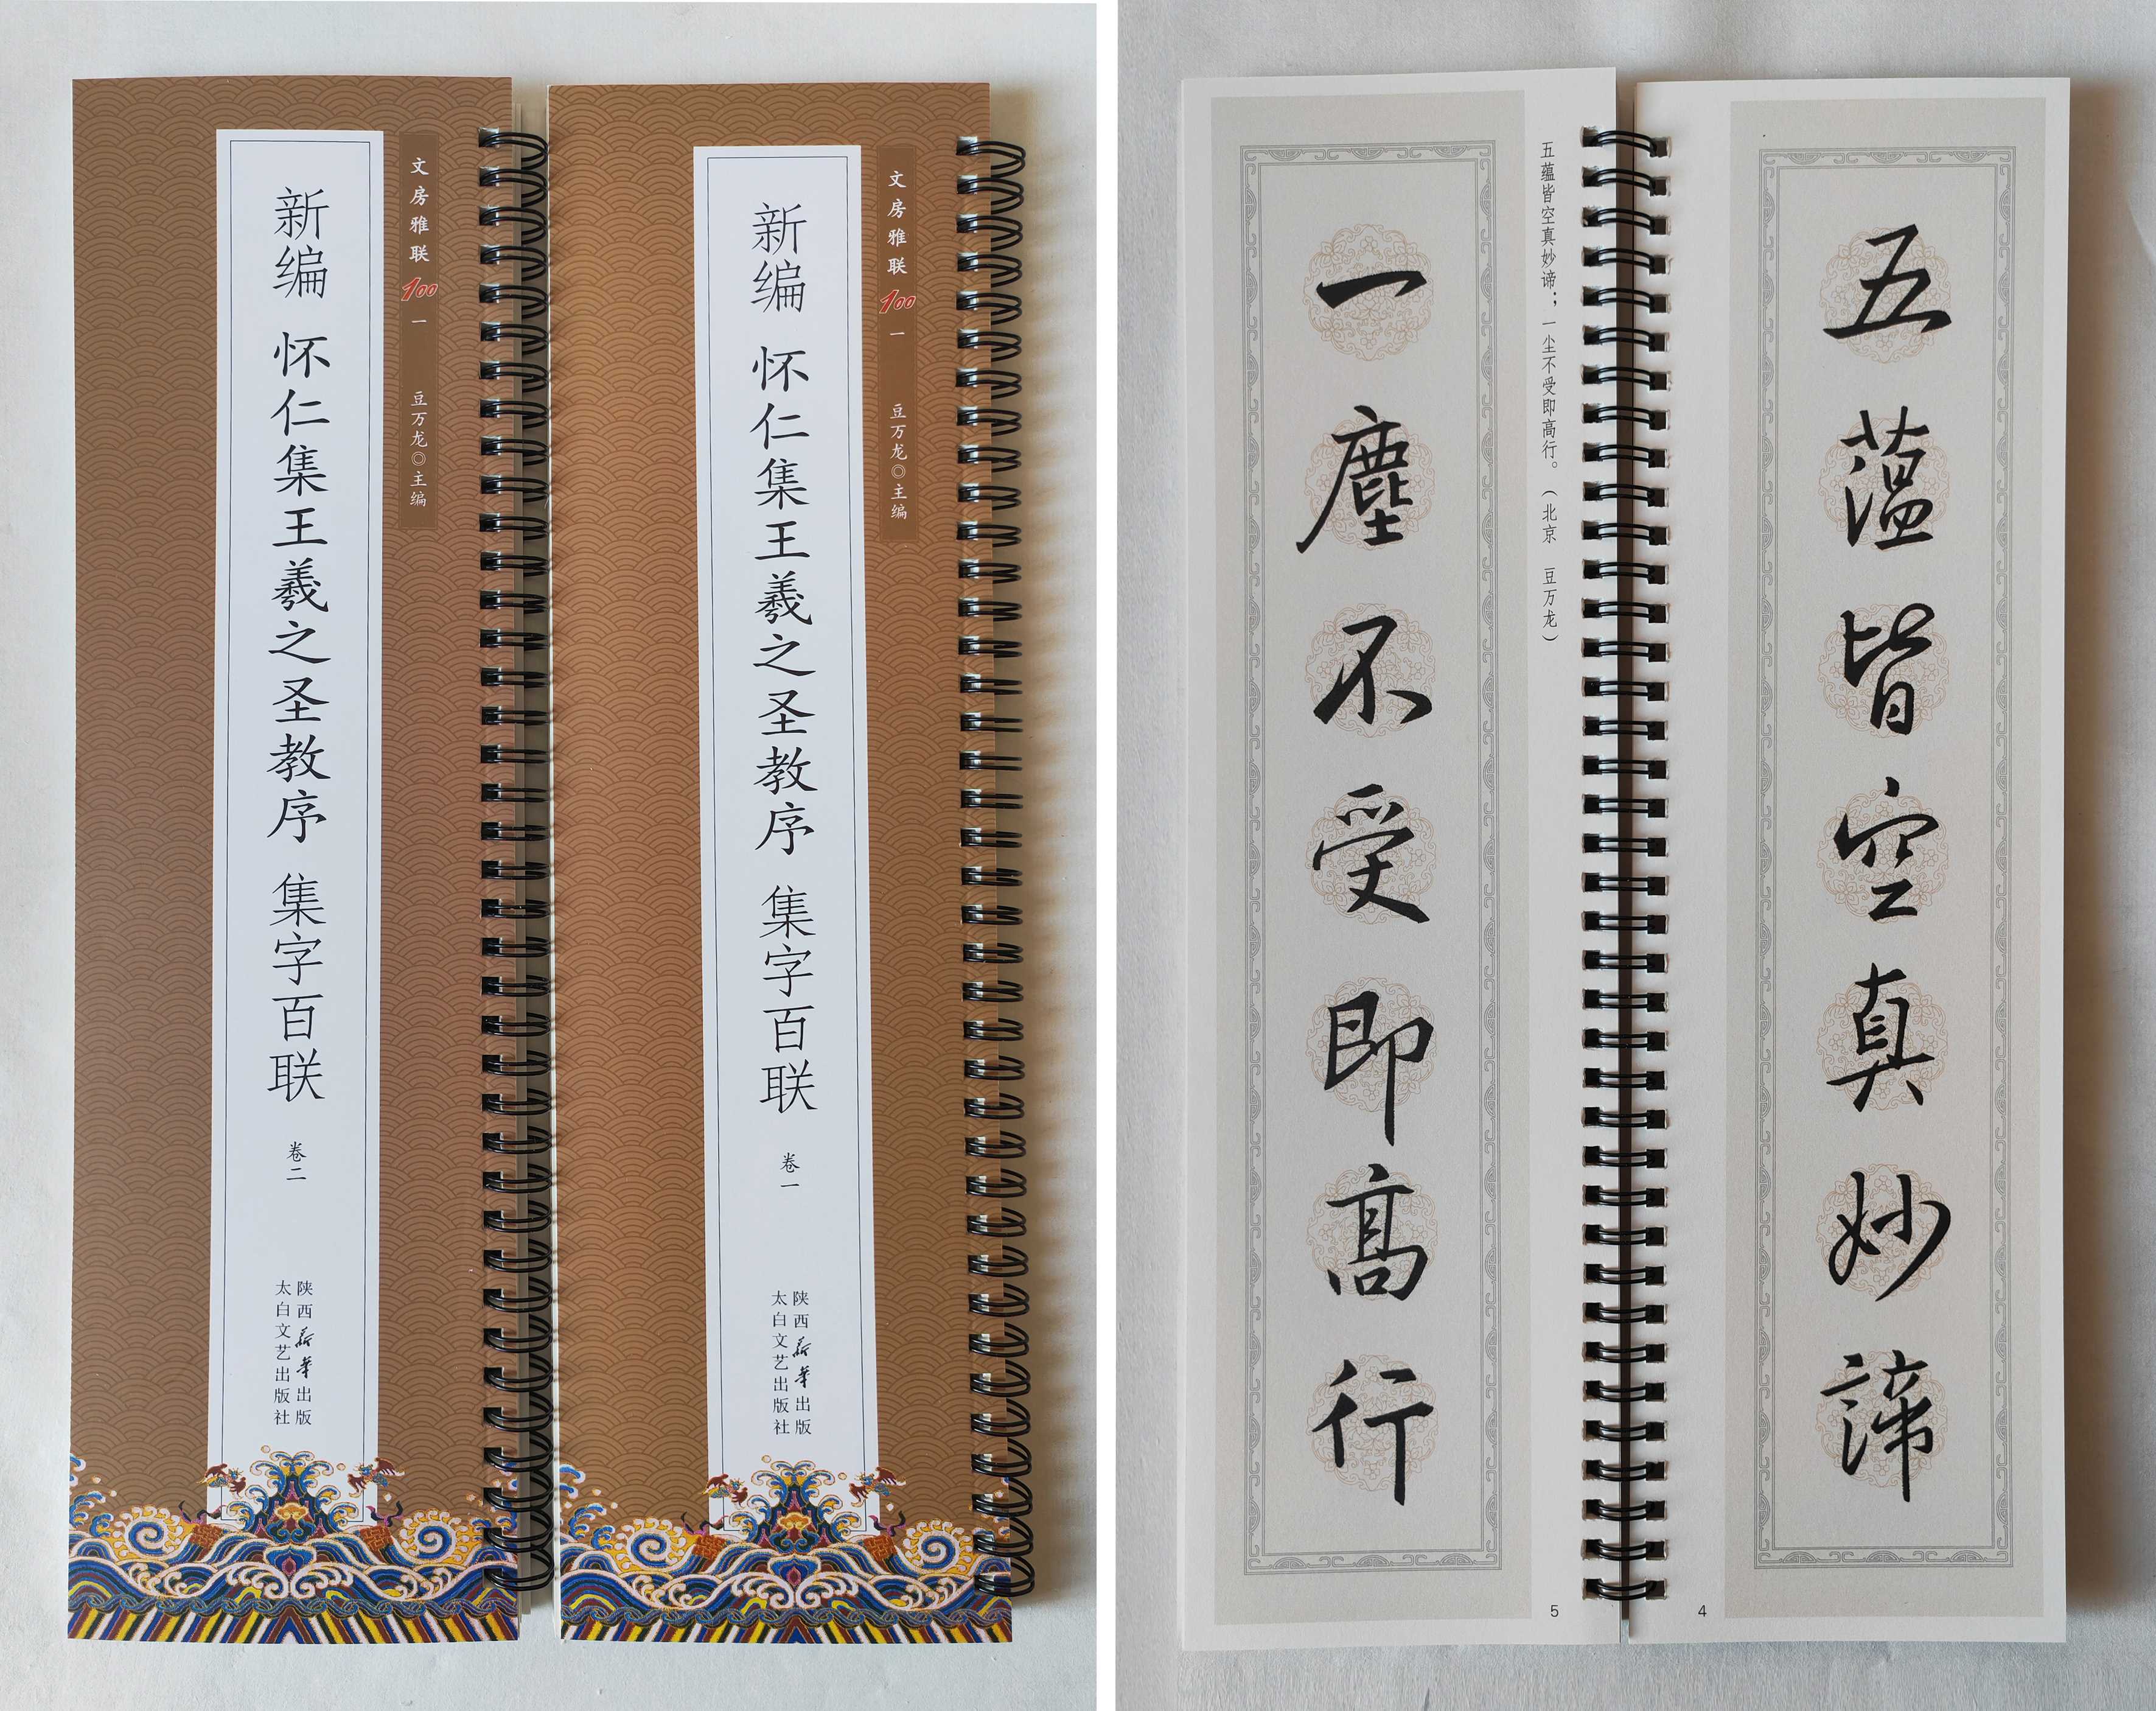 文房雅联100 一 豆万龙◎主编
新编 怀仁集王羲之圣教序 集字百联 卷二
陕西新华出版
太白文艺出版社
文房雅联100 一 豆万龙◎主编
新编 怀仁集王羲之圣教序 集字百联 卷一
陕西新华出版
太白文艺出版社
五蕴皆空真妙諦
4
五蕴皆空真妙谛；一尘不受即高行。（北京 豆万龙）
一塵不受即高行
5